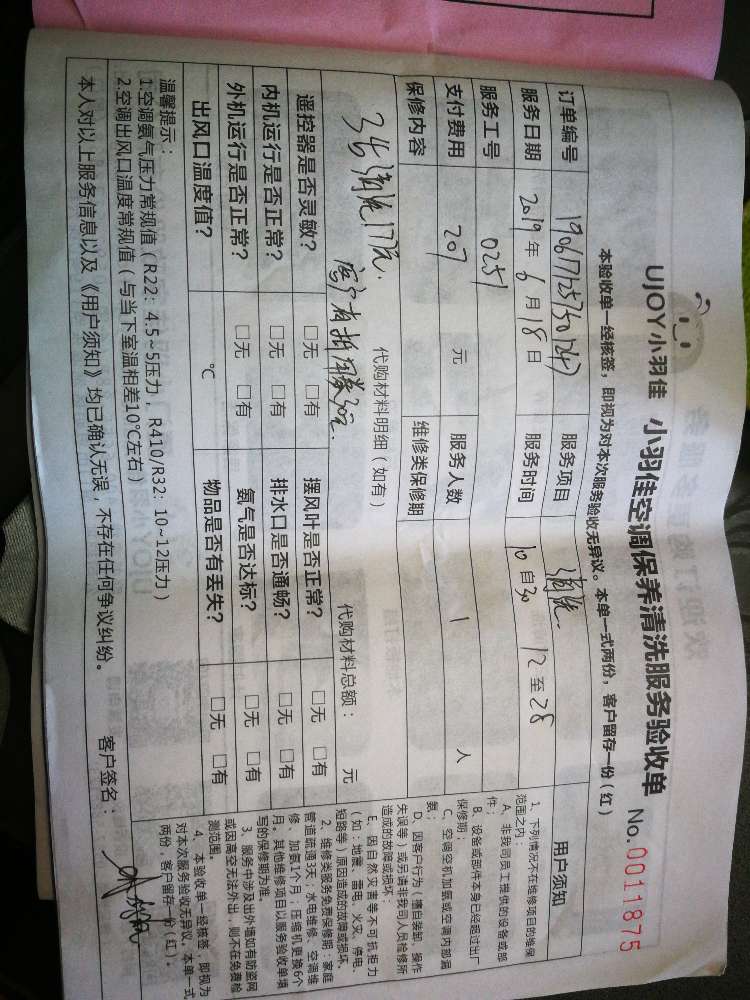 UJOY小羽佳 小羽佳空调保养清洗服务验收单 No.0011875
本验收单一经核签，即视为对本次服务验收无异议。本单一式两份，客户留存一份（红）
订单编号 服务项目 清洗
服务日期 2019年6月18日 服务时间 10自30 12至28
服务工号 0251
支付费用 207 元 服务人数 1 人
保修内容 维修类保修期
代购材料明细（如有） 代购材料总额： 元
遥控器是否灵敏？ □无 □有 摆风叶是否正常？ □无 □有
内机运行是否正常？ □无 □有 排水口是否通畅？ □无 □有
外机运行是否正常？ □无 □有 氨气是否达标？ □无 □有
出风口温度值？ ℃ 物品是否有丢失？ □无 □有
温馨提示：
1.空调氨气压力常规值（R22：4.5~5压力，R410/R32：10~12压力）
2.空调出风口温度常规值（与当下室温相差10℃左右）
本人对以上服务信息以及《用户须知》均已确认无误，不存在任何争议纠纷。 客户签名：
用户须知
1、下列情况不在维修项目的维保
范围之内：
A、非我司员工提供的设备或部
件；
B、设备或部件本身已经超过出厂
保修期；
C、空调空机加氨或空调内部漏
氨；
D、因客户行为（擅自装卸、操作
失误等）或另请非我司人员检修所
造成的故障或损坏；
E、因自然灾害等不可抗拒力
（如：地震、雷电、火灾、停电、
短路等）原因造成的故障或损坏。
2、维修类服务免费保修期：家庭
管道疏通3天；水电维修、空调维
修、加氨1个月；压缩机更换6个
月。其他维修项目以服务验收单填
写的保修期为准。
3、服务中涉及出外墙如有防盗网
或因高空无法外出，则不在免费检
测范围。
4、本验收单一经核签，即视为
对本次服务验收无异议。本单一式
两份，客户留存一份（红）。